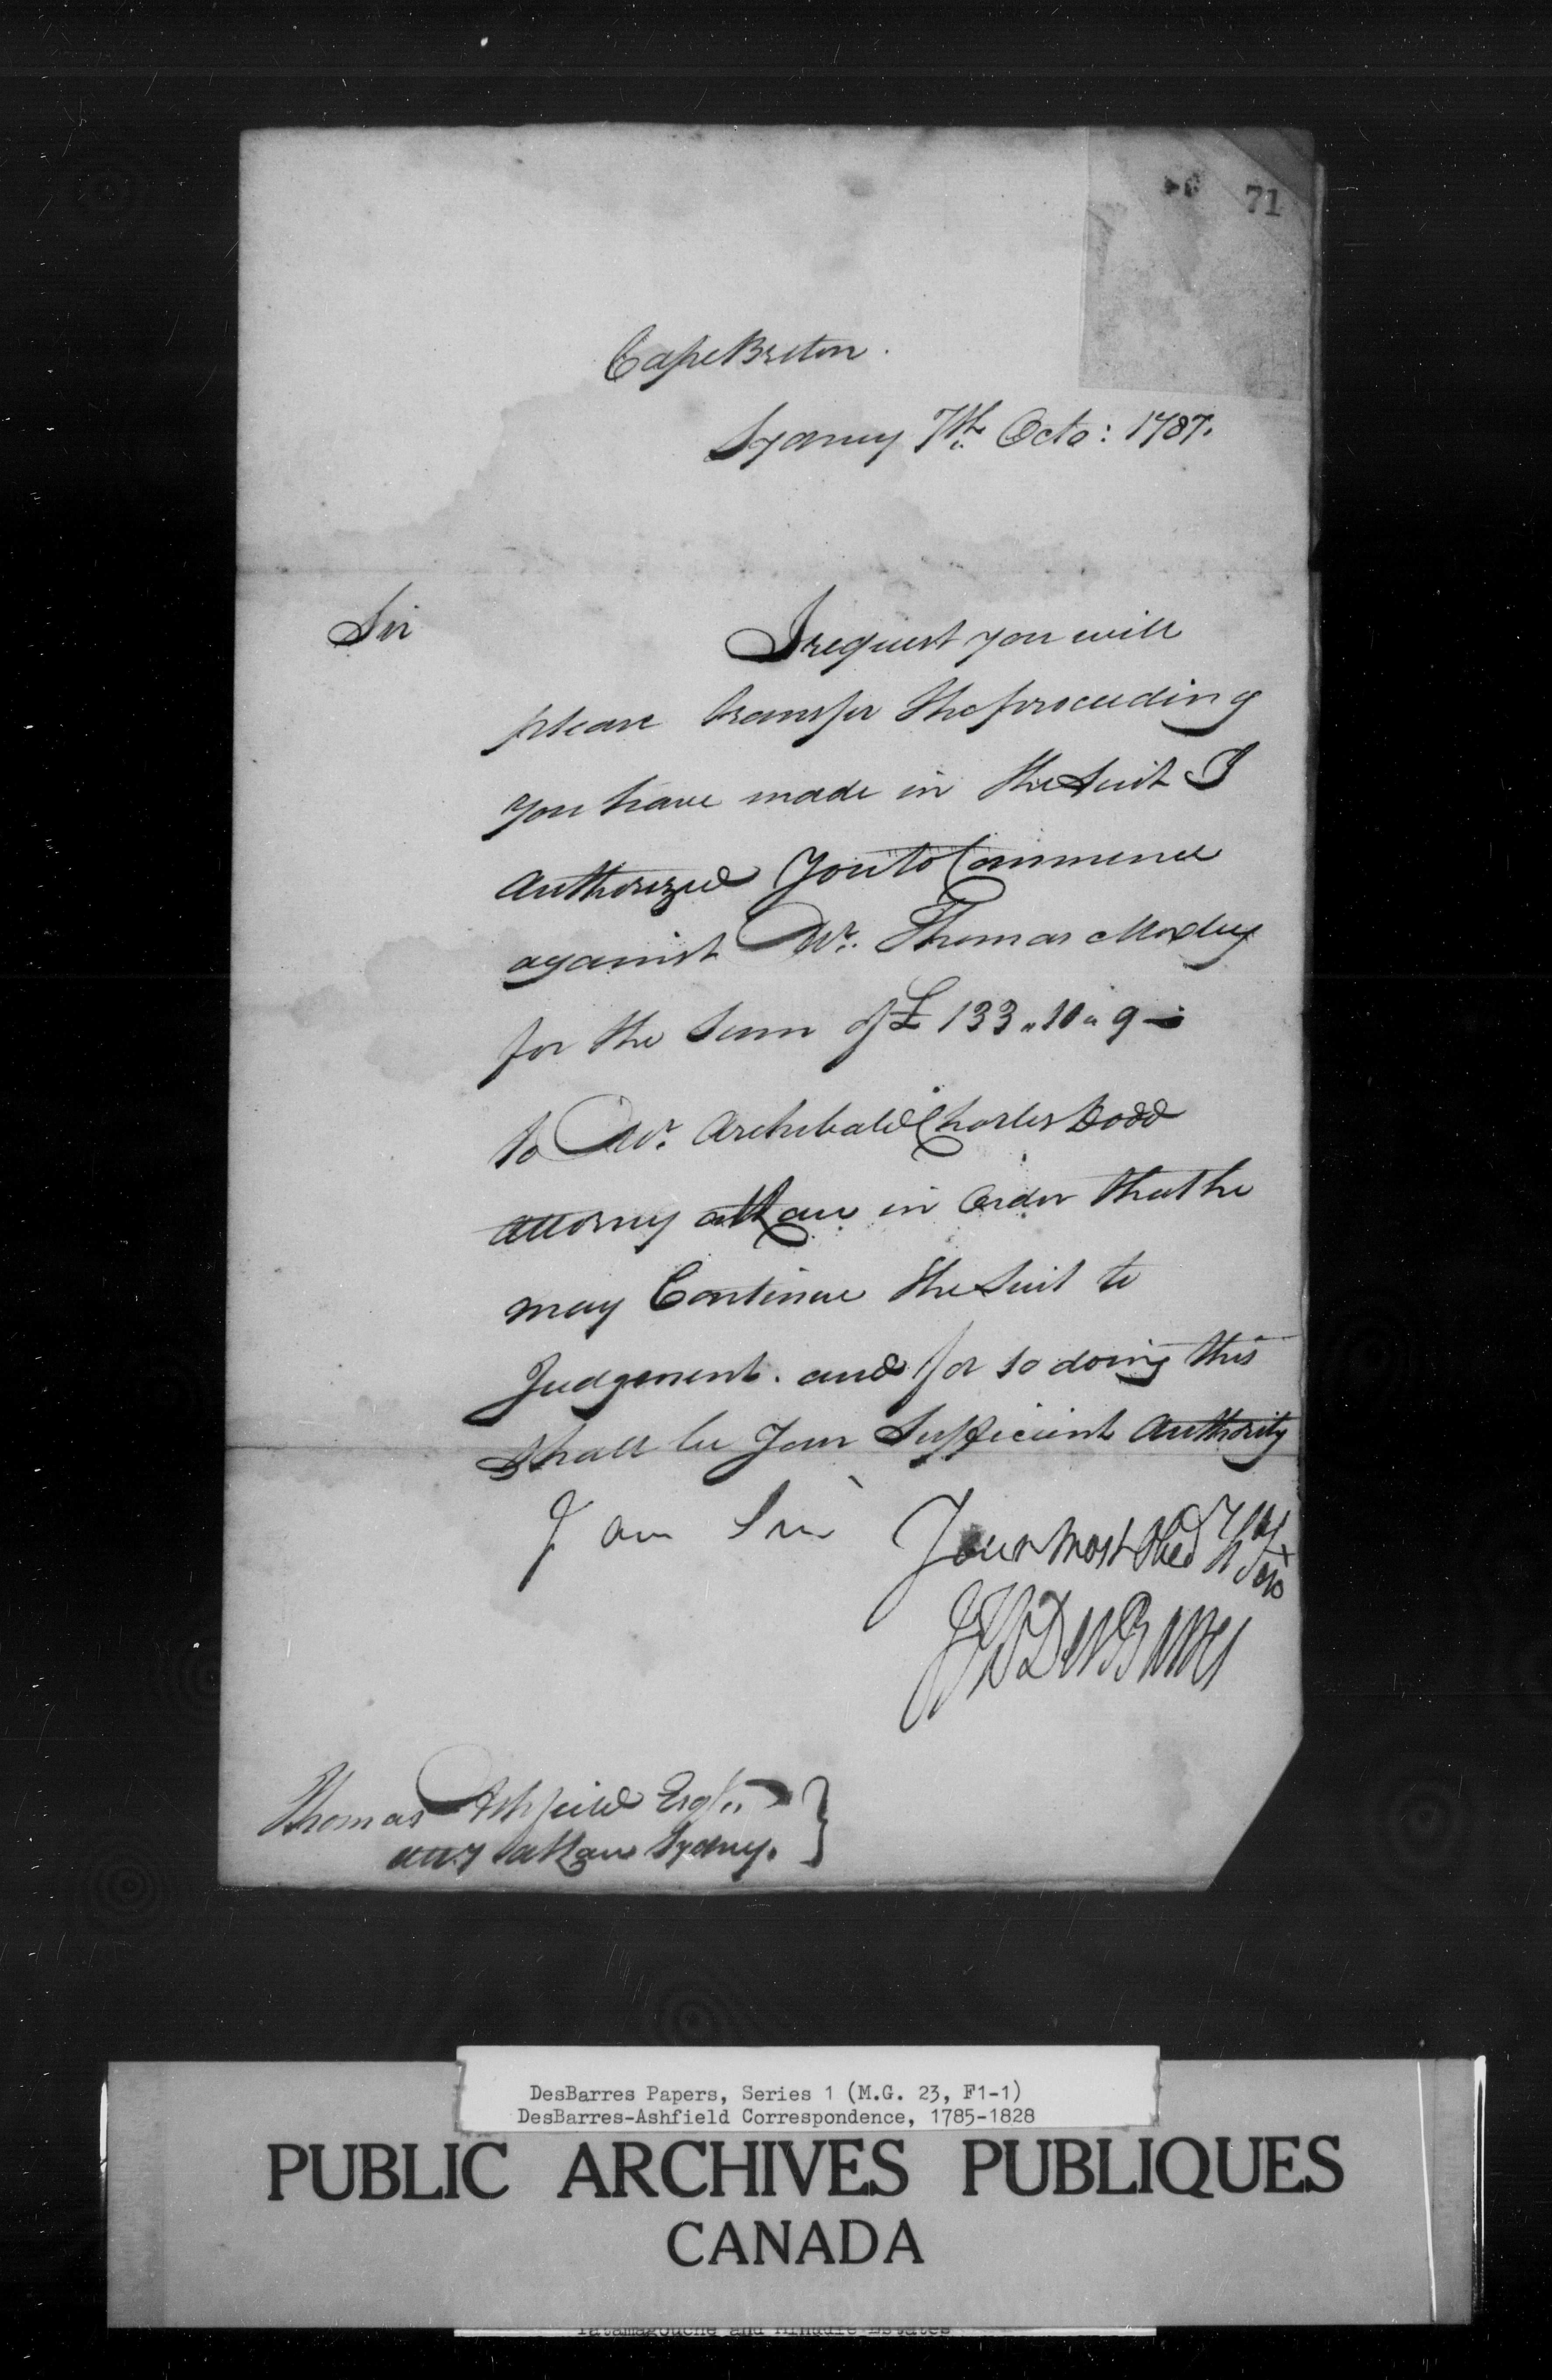 71
Cape Breton.
Sydney 7th. Octo: 1787.
Sir
I request you will
please transfer the proceeding
you have made in the Suit I
authorized You to Commence
against Mr. Thomas Moxley
for the Sum of £ 133 " 10 " 9 -
to Mr. Archibald Charles Dodd
attorny at Law in Order that he
may Continue the Suit to
Judgement. and for so doing this
shall be Your Sufficient Authority
I am Sir
Your most Obed
J F W DesBarres
Thomas Ashfield Esqr.
atty at Law Sydney. }
DesBarres Papers, Series 1 (M.G. 23, F1-1)
DesBarres-Ashfield Correspondence, 1785-1828
PUBLIC ARCHIVES PUBLIQUES
CANADA
Tatamagouche and Minudie Estates